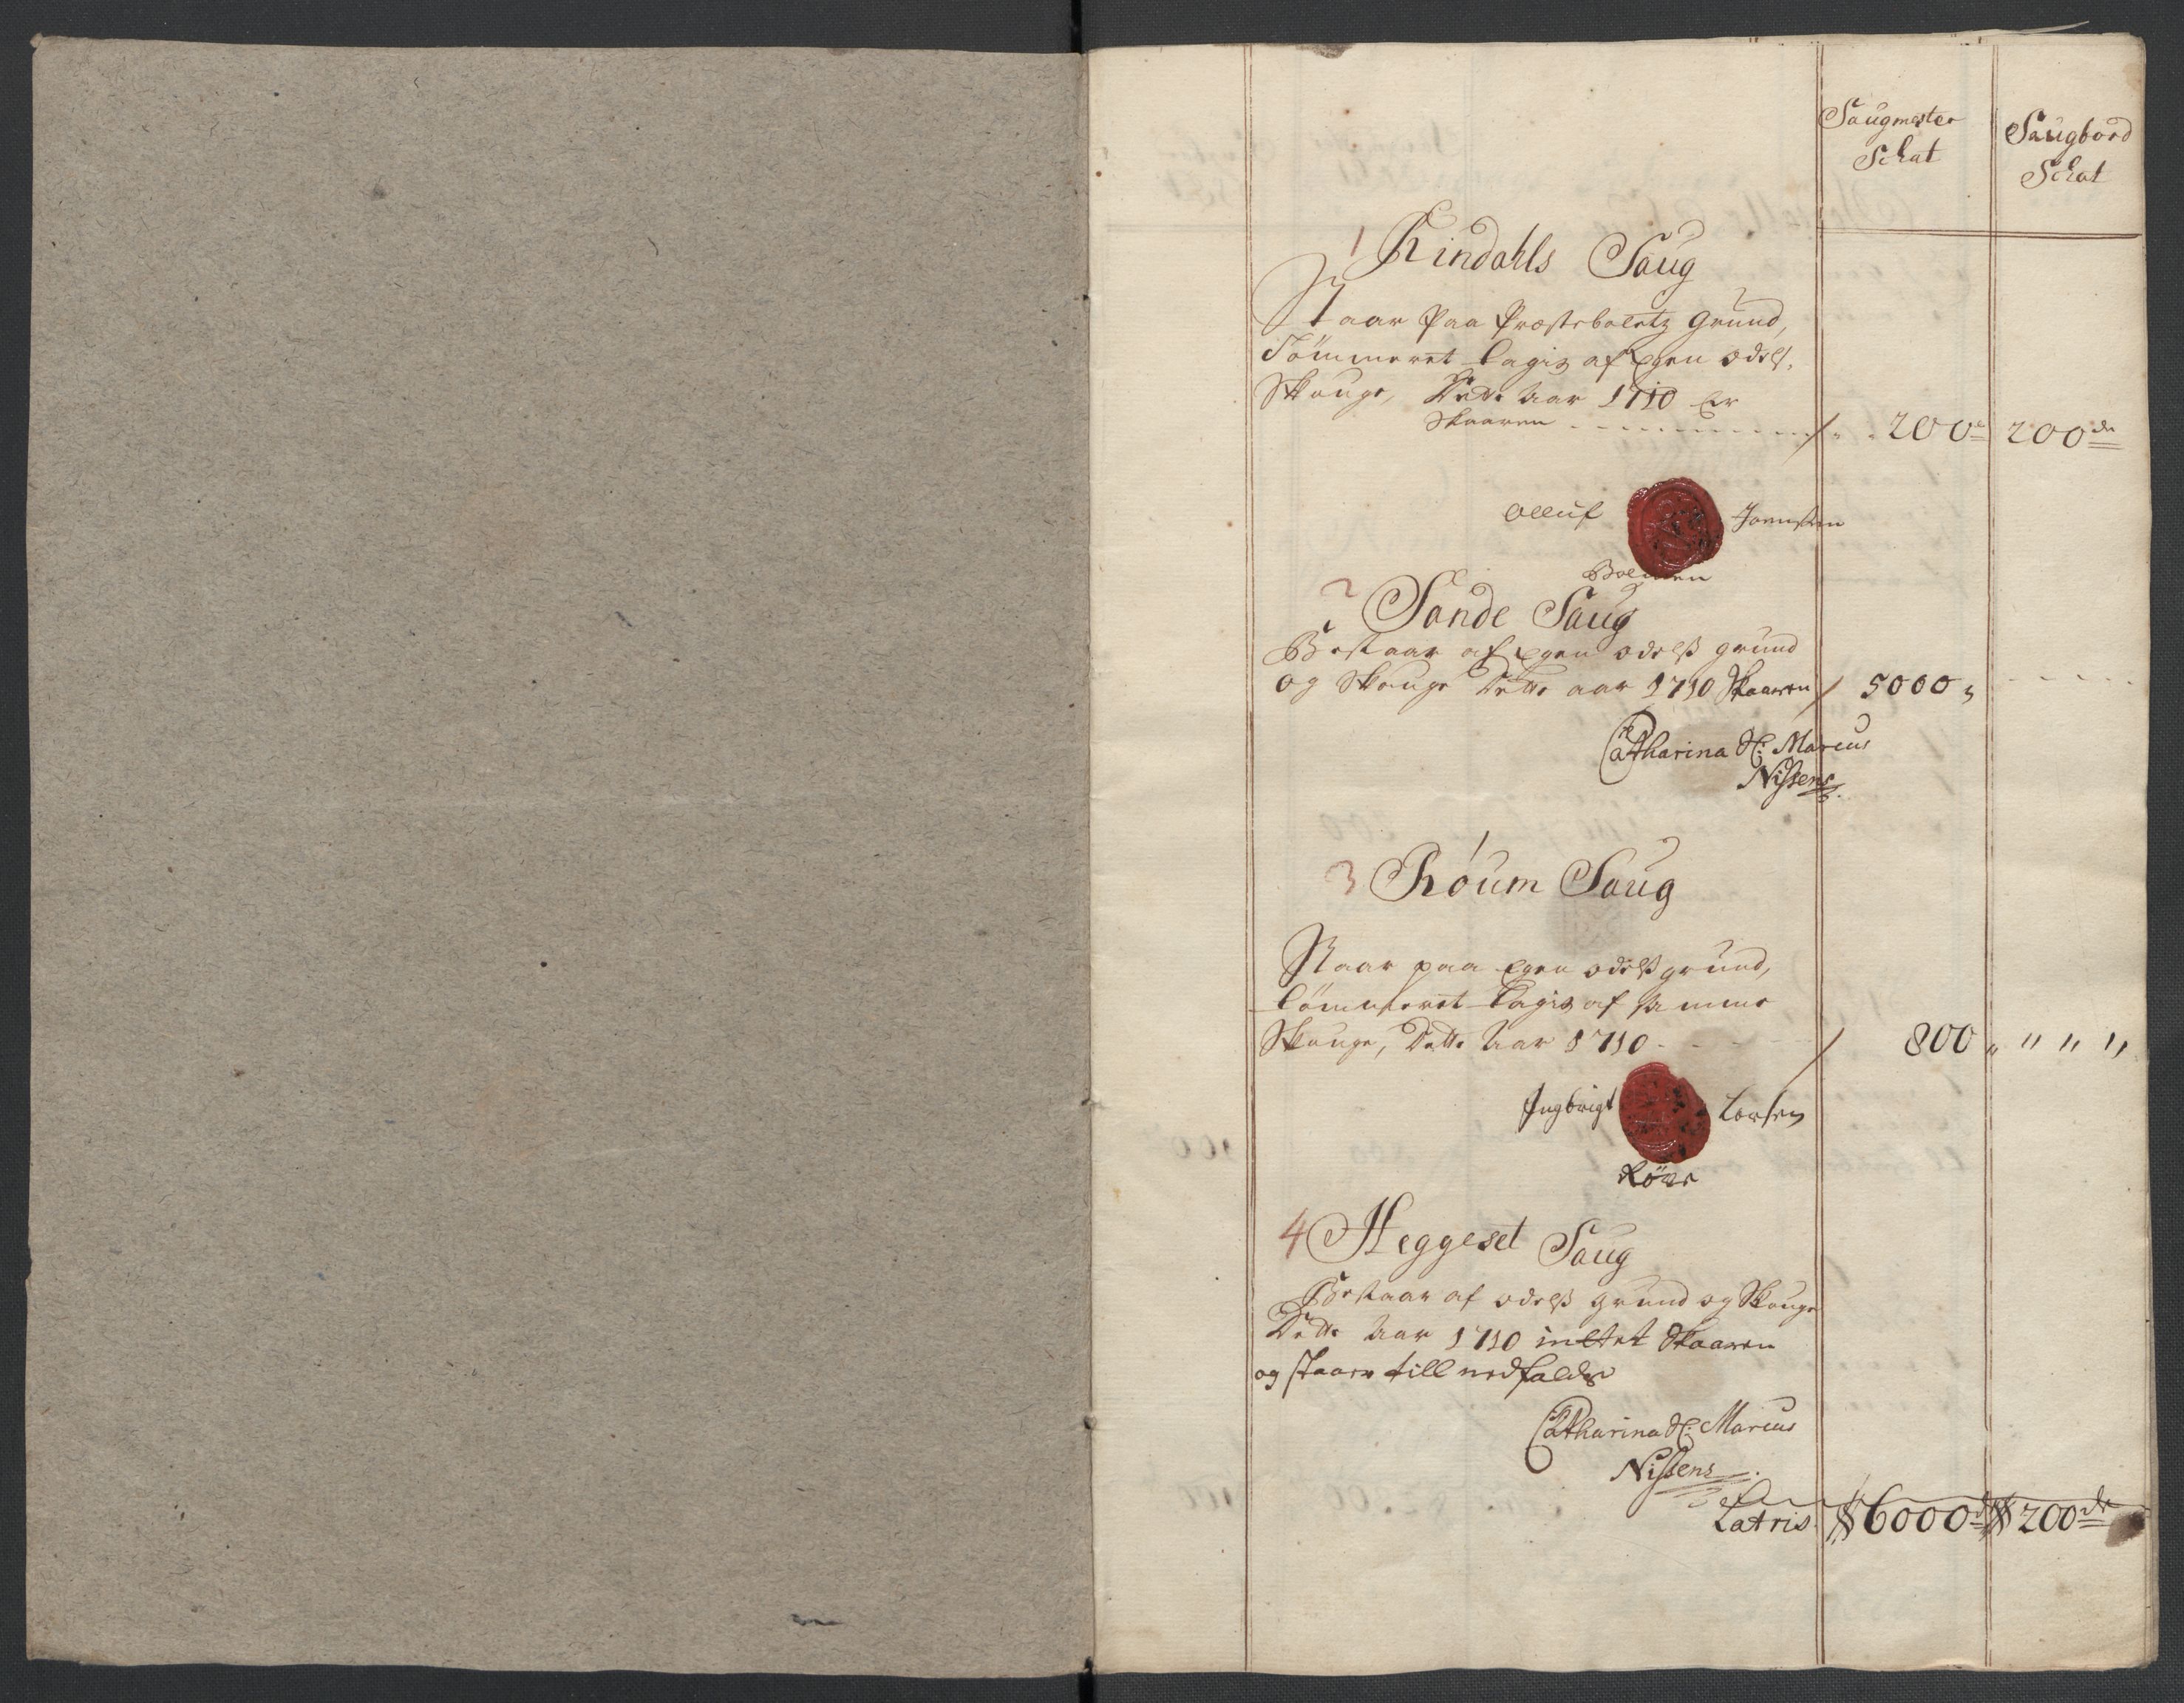 Saugmester
Schat
Saugbord
Schat
1 Rindahls Saug
Staar Paa Præstebolets Grund,
Tömmeret tagis af Egen odels
Skouge, Dette Aar 1710 Er
Skaaren 200 200 dr
Olluf Joensen
2 Sande Saug
Bestaar af Egen odelß grund
og Skouge Dette aar 1710 Skaaren 5000
Catharina Sl: Marcus
Nissens
3 Röum Saug
Staar paa Egen odelß grund,
tömmeret tagis af samme
Skouge, Dette Aar 1710 800 " " "
Ingbrigt Larsen
4 Heggeset Saug
Bestaar af odelß grund og Skouge
Dette Aar 1710 intet Skaaren
og staar till nedfalds
Catharina Sl: Marcus
Nissens
Latris 6000 200 dr